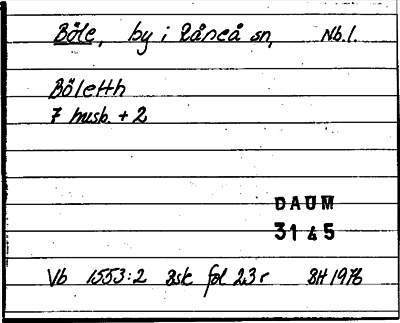 Böle, by i Råneå sn, Nb.l.
Böletth
7 husb. + 2
DAUM
3145
Vb 1553:2 Bsk fol 23r BH 1976